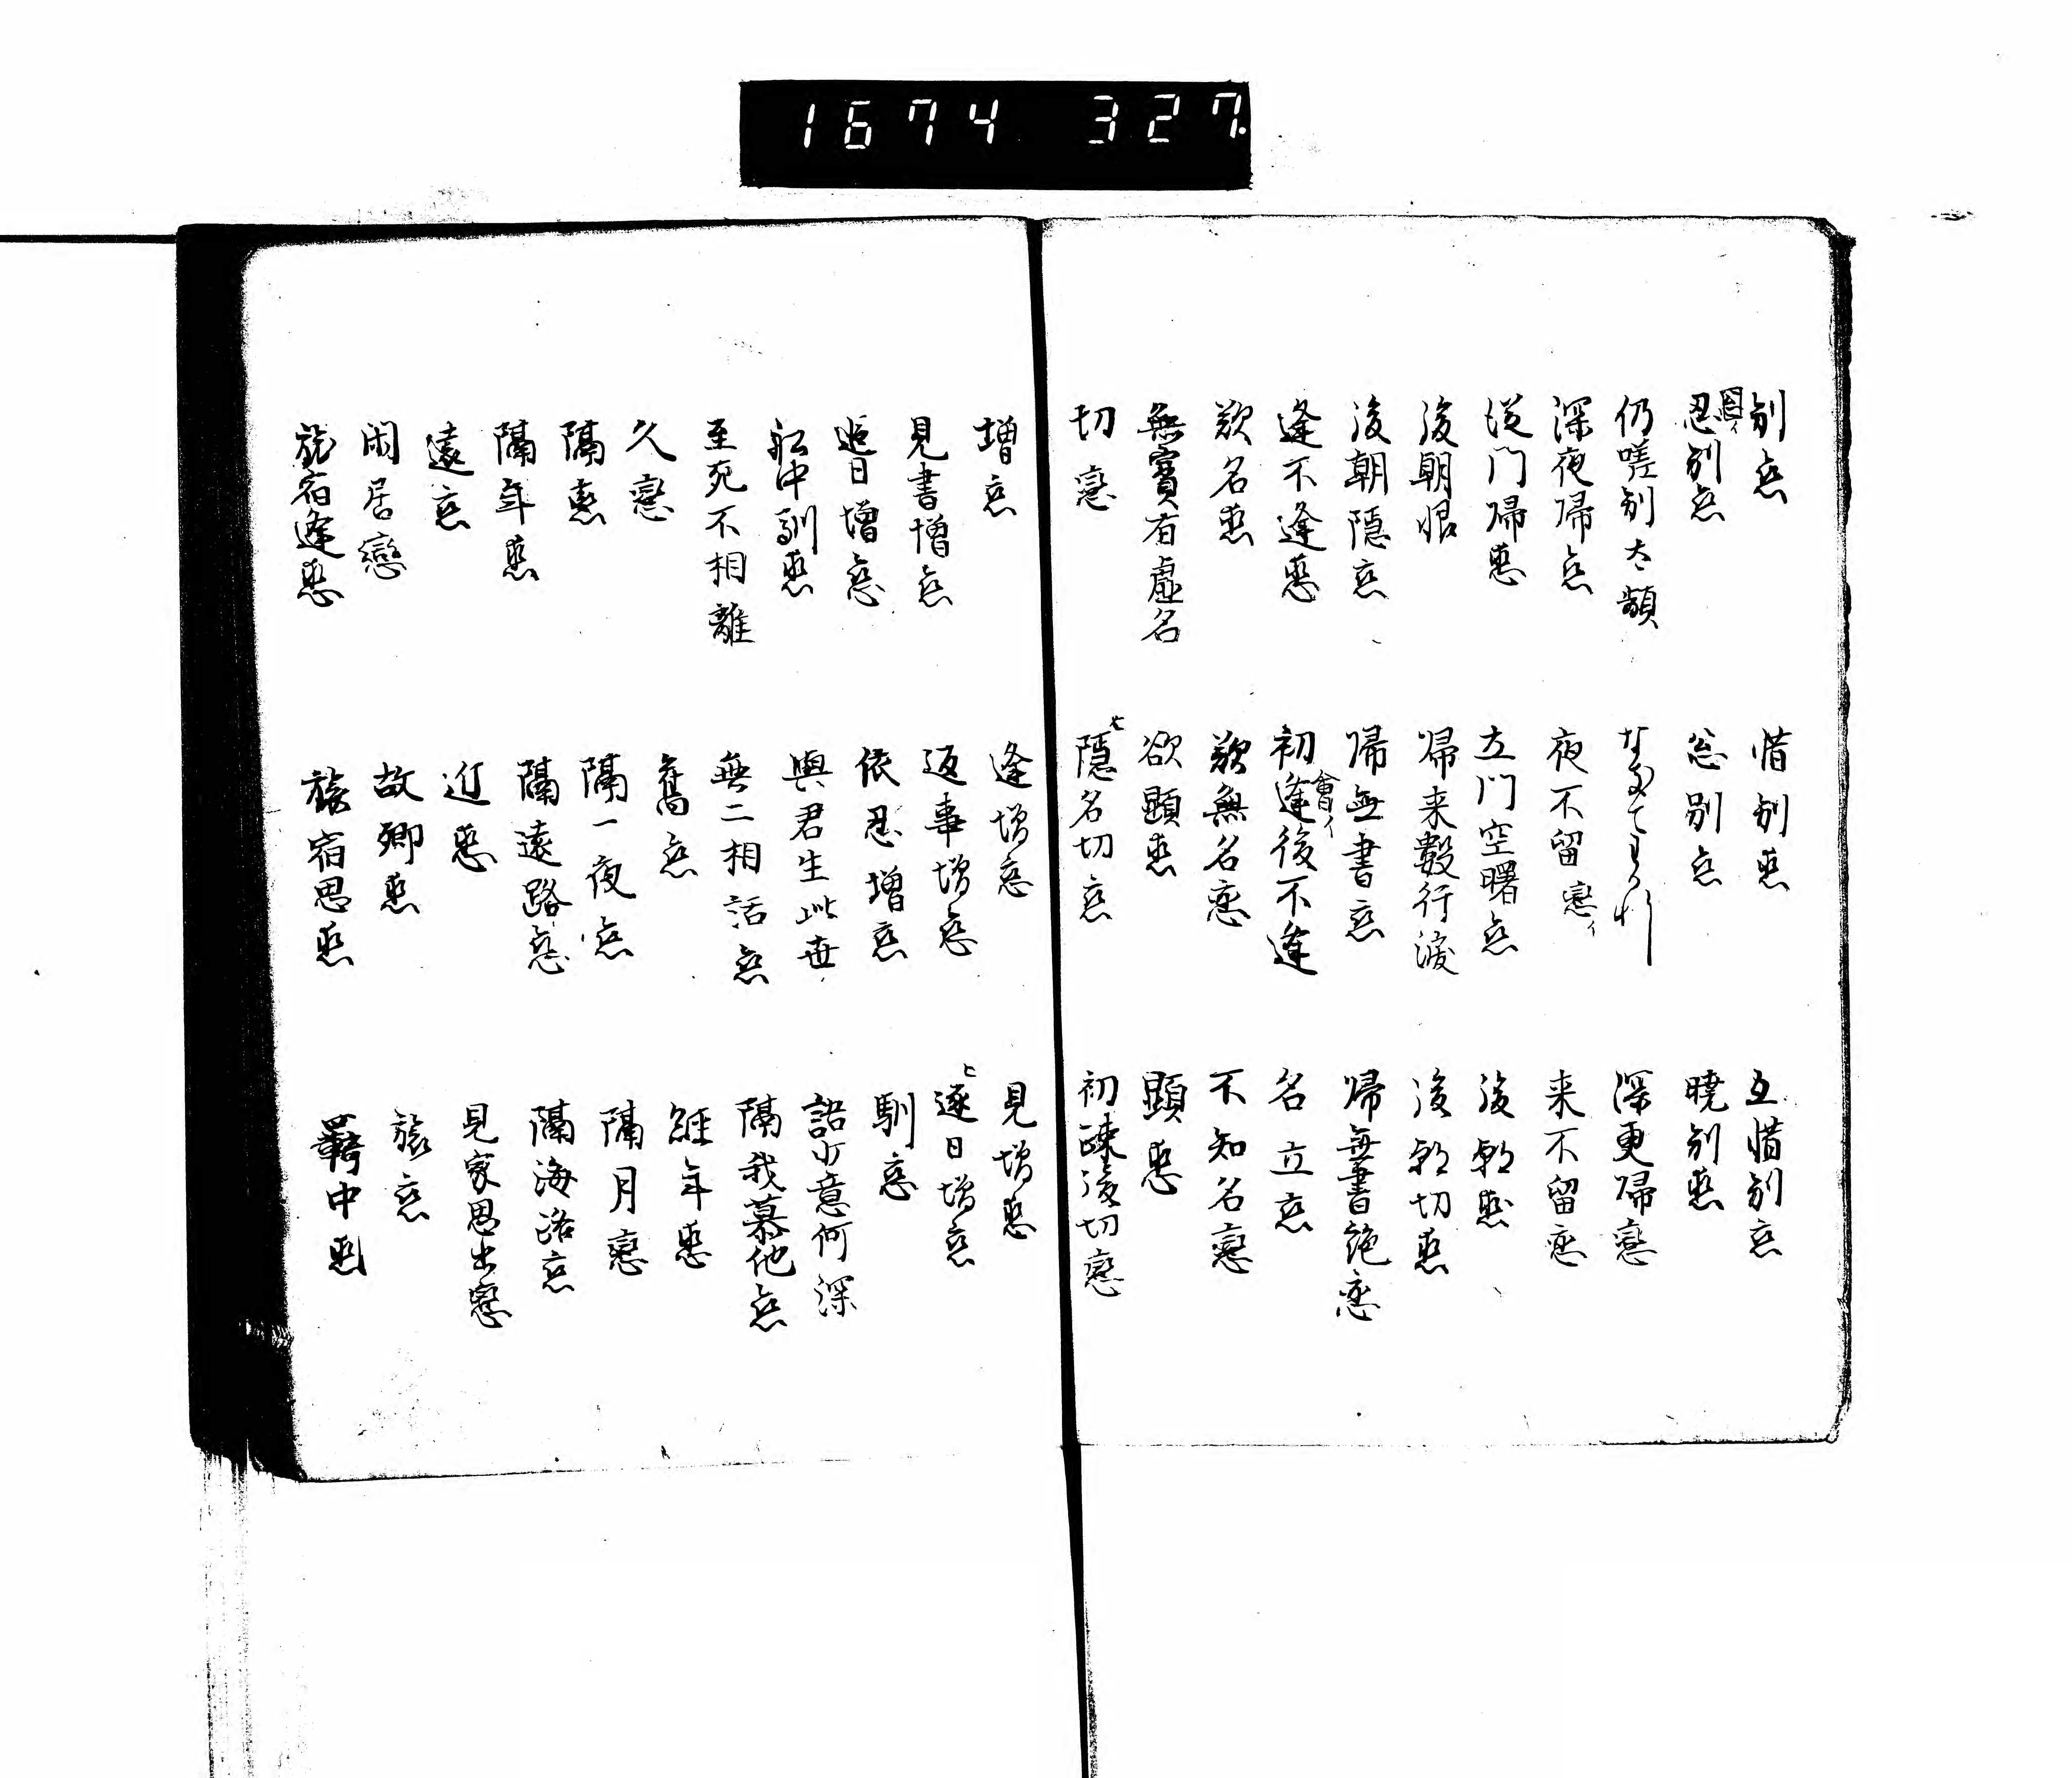 1674 327.
別恋 惜別恋 互惜別恋
忍別恋 忩別恋 暁別恋
仍嗟別太顰 深更帰戀
深夜帰恋 夜不留 戀イ 来不留恋
従門帰恋 立門空曙恋 後朝恋
後朝恨 帰来數行涙 後朝切恋
後朝隠恋 帰無書恋 帰無書絶恋
逢不逢恋 初逢後不逢 會イ 名立恋
歎名恋 歎無名恋 不知名戀
無實有虚名 欲顕恋 顕恋
切戀 隠名切恋 初疎後切戀
増恋 逢増恋 見増恋
見書増恋 返事増恋 逐日増恋
追日増恋 依忍増恋 馴恋
馴恋 與君生此世 語少意何深
至死不相離 無二相語恋 隔我慕他恋
久戀 舊恋 經年恋
隔恋 隔一夜恋 隔月戀
隔年恋 隔遠路恋 隔海路恋
遠恋 近恋 見家思出戀
閑居戀 故郷恋 旅恋
旅宿逢恋 旅宿思恋 羇中恋